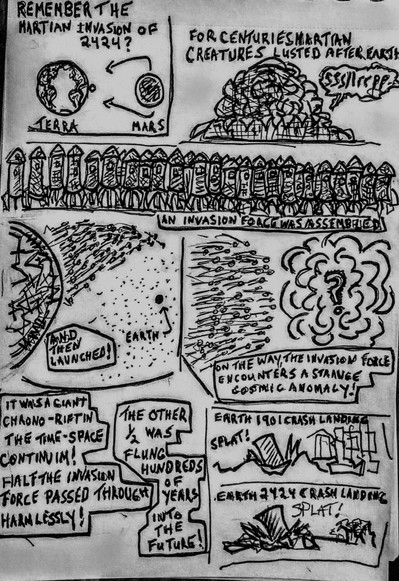 REMEMBER THE
MARTIAN INVASION OF
2424?
TERRA
MARS
FOR CENTURIES MARTIAN
CREATURES LUSTED AFTER EARTH
SSS/lrrpp.
AN INVASION FORCE WAS ASSEMBLED
AND
THEN
LAUNCHED!
EARTH
?
ON THE WAY, THE INVASION FORCE
ENCOUNTERS A STRANGE
COSMIC ANOMALY!
IT WAS A GIANT
CHRONO-RIFT IN
THE TIME-SPACE
CONTINUIM!
HALF THE INVASION
FORCE PASSED THROUGH
HARMLESSLY!
THE OTHER
1/2 WAS
FLUNG
HUNDREDS
OF
YEARS
INTO
THE
FUTURE!
EARTH 1901 CRASH LANDING
SPLAT!
EARTH 2424 CRASH LANDING
SPLAT!